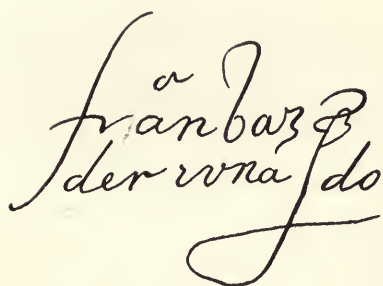 från baz
der rvna do